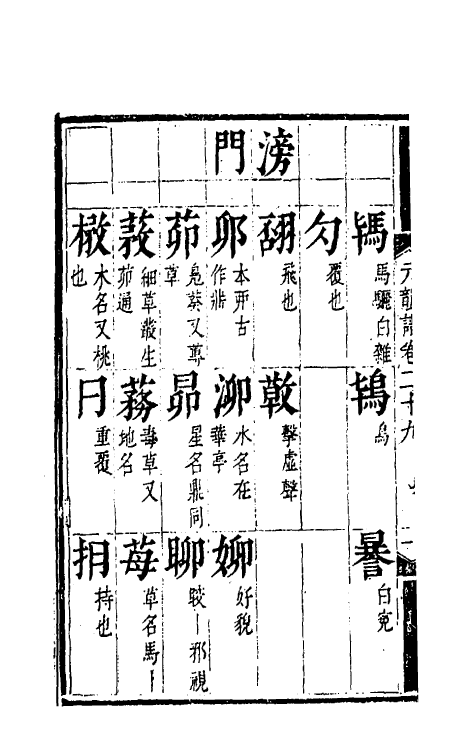 元韻譜卷二十九
馬驪白雜
鴇
鳥
白寃
勹
覆也
滂門
翮
飛也
擊虛聲
卯
本丣古作𤕰
泖
水名在華亭
媌
好貌
茆
鳧葵又蓴草
昴
星名鼎同
聊
睒丨邪視
細草叢生茆通
蓩
毒草又地名
莓
草名馬丨
木名又桃也
冃
重覆
抇
持也